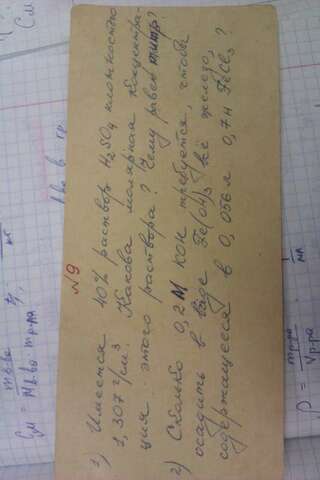 N 9
1) Имеется 40% раствор H₂SO₄ плотностью
1,307 г/см³. Какова молярная концентра-
ция этого раствора? Чему равен титр?
2) Сколько 0,2М KOH требуется, чтобы
осадить в виде Fe(OH)₃ всё железо,
содержащееся в 0,056 л 0,7н FeCl₃?
См =
ρ = m р-ра / V р-ра